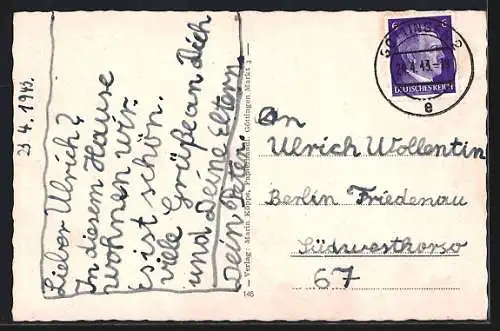 23 4. 1943.
Lieber Ulrich?
In diesem Hause
wohnen wir.
Es ist schön.
Viele Grüße an Dich
und Deine Eltern.
Dein Peter.
146 — Verlag: Maria Koppe, Göttingen Markt 3 —
6 6
DEUTSCHES REICH
.4.43.-
e
An
Ulrich Wollentin
Berlin Friedenau
Südwestkorso
67